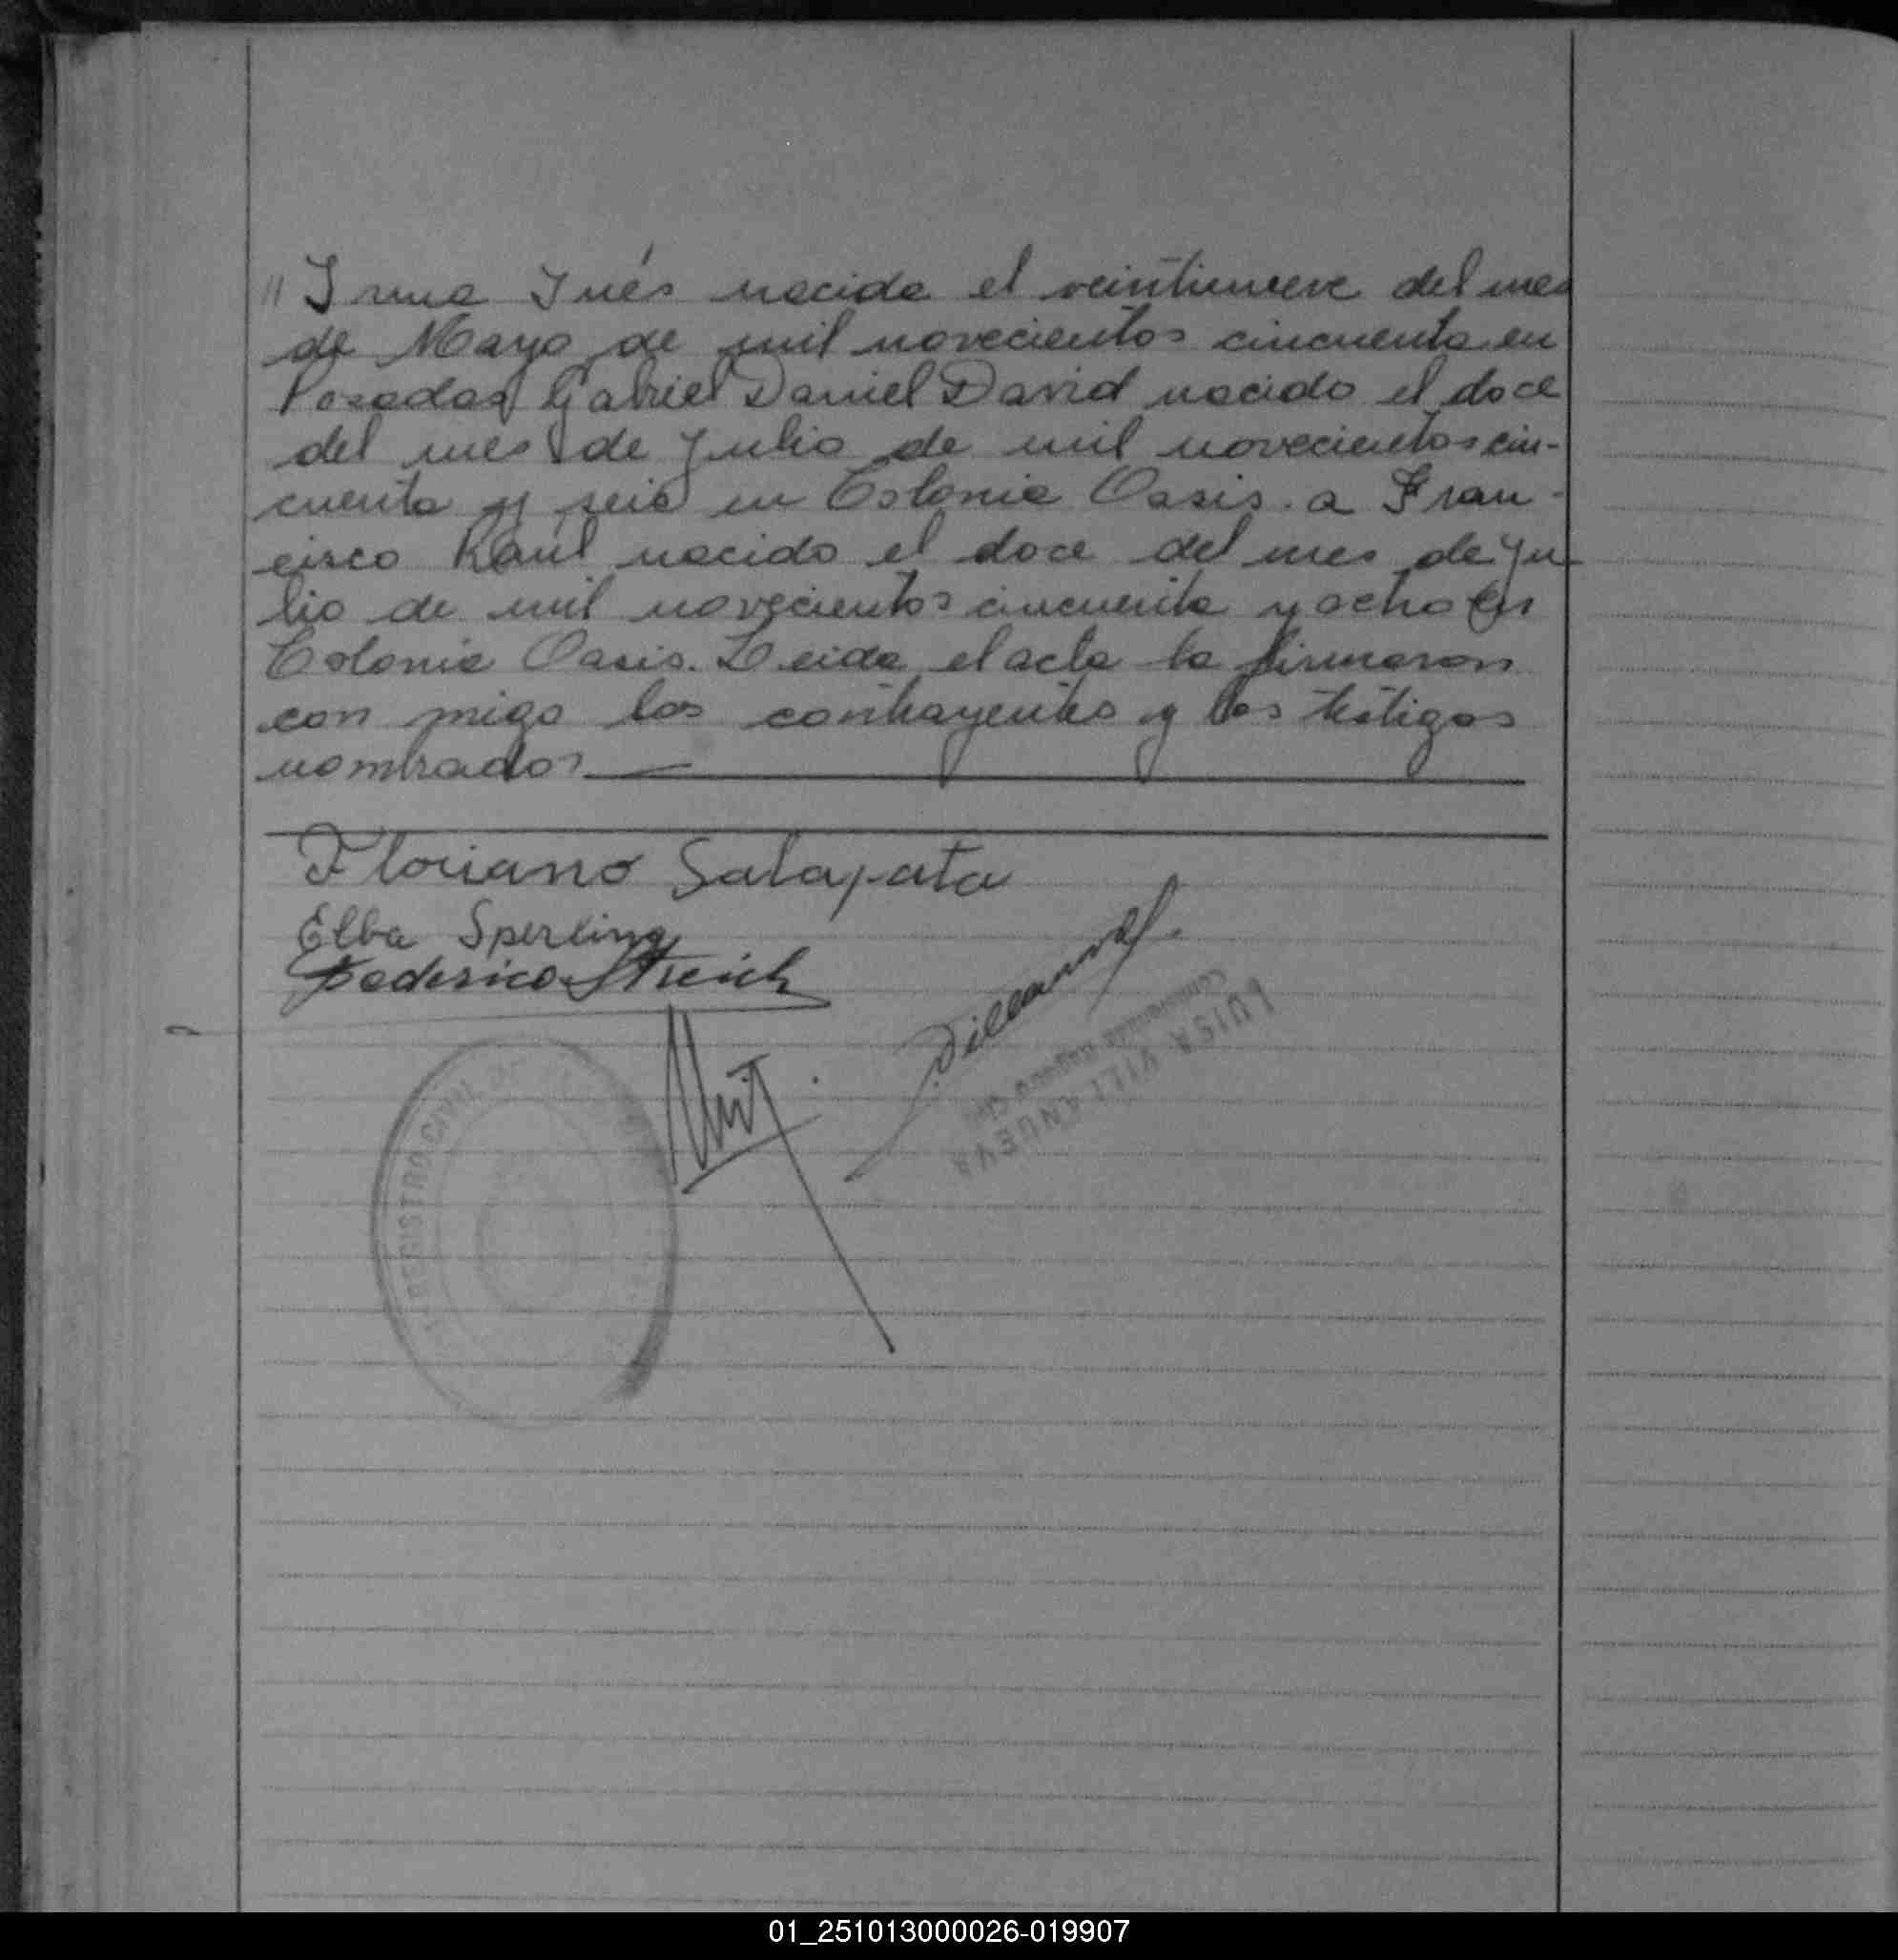 " Irma Inés nacida el veintinueve del mes
de Mayo de mil novecientos cincuenta en
Posadas Gabriel Daniel David nacido el doce
del mes de Julio de mil novecientos cin-
cuenta y seis en Colonia Oasis. a Fran-
cisco Raúl nacido el doce del mes de Ju
lio de mil novecientos cincuenta y ocho en
Colonia Oasis. Leida el acta la firmaron
con migo los contrayentes y los testigos
nombrados
Floriano Salapata
Elba Sperling
Federico Streich
LUISA VILLANUEVA
REGISTRO CIVIL DE
01_251013000026-019907